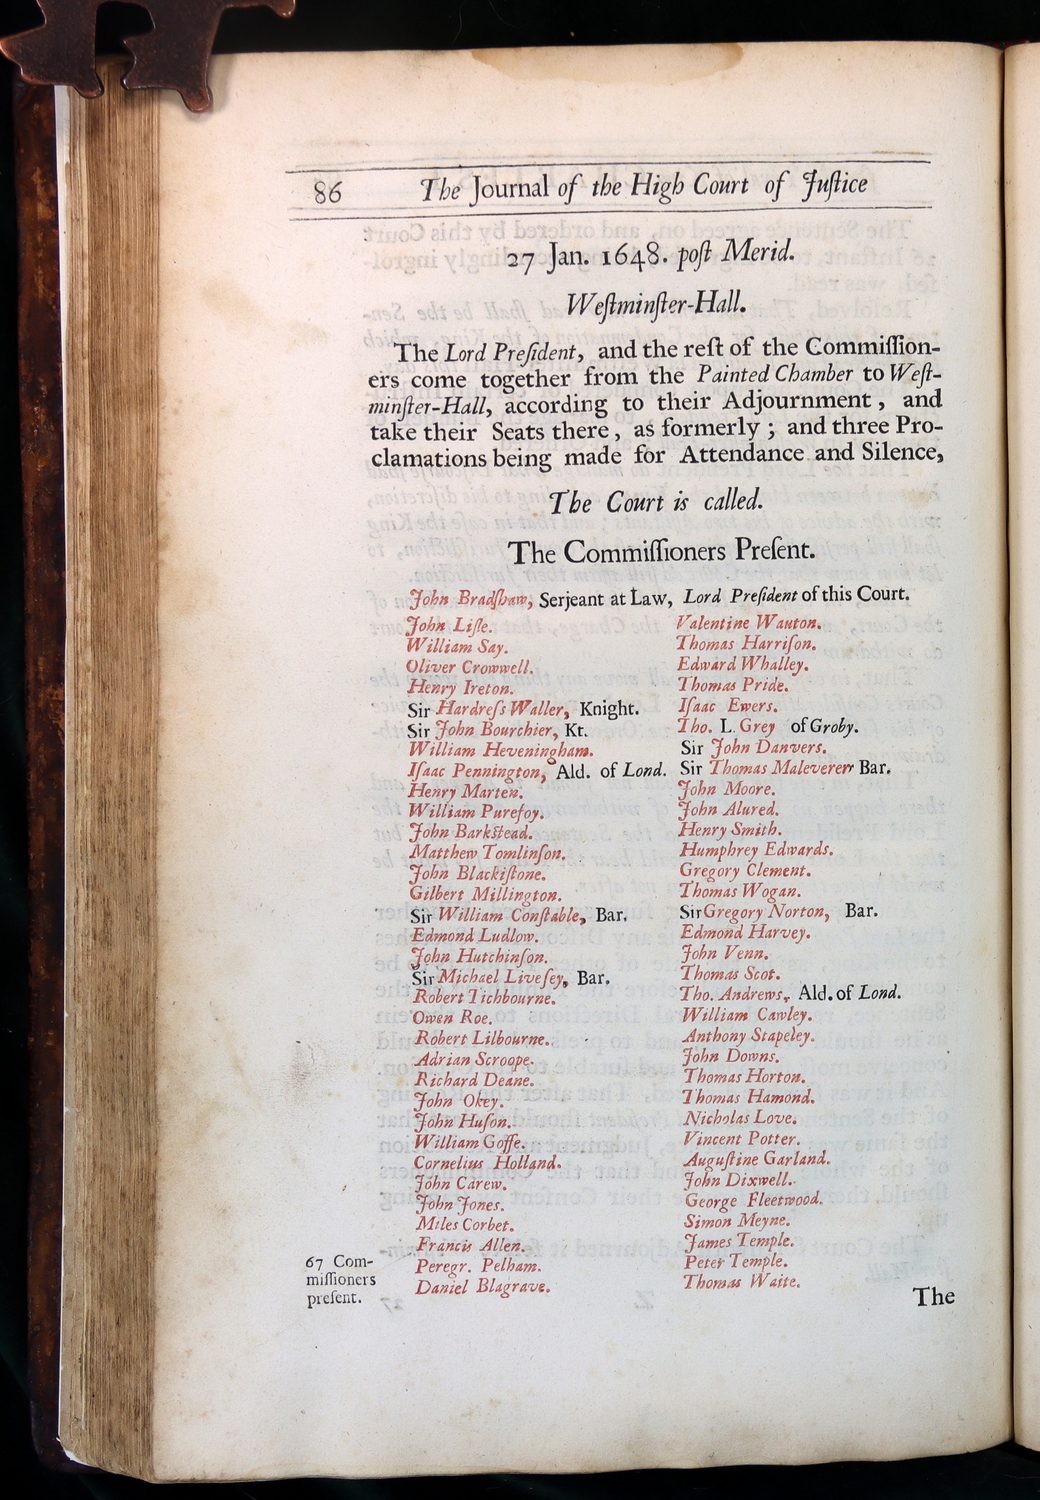 86 The Journal of the High Court of Juſtice
27 Jan. 1648. poſt Merid.
Weſtminſter-Hall.
The Lord Preſident, and the reſt of the Commiſſion-
ers come together from the Painted Chamber to Weſt-
minſter-Hall, according to their Adjournment, and
take their Seats there, as formerly; and three Pro-
clamations being made for Attendance and Silence,
The Court is called.
The Commiſſioners Preſent.
John Bradſhaw, Serjeant at Law, Lord Preſident of this Court.
John Liſle.
William Say.
Oliver Crowwell.
Henry Ireton.
Sir Hardreſs Waller, Knight.
Sir John Bourchier, Kt.
William Heveningham.
Iſaac Pennington, Ald. of Lond.
Henry Marten.
William Purefoy.
John Barkstead.
Matthew Tomlinſon.
John Blackiſtone.
Gilbert Millington.
Sir William Conſtable, Bar.
Edmond Ludlow.
John Hutchinſon.
Sir Michael Liveſey, Bar.
Robert Tichbourne.
Owen Roe.
Robert Lilbourne.
Adrian Scroope.
Richard Deane.
John Okey.
John Huſon.
William Goffe.
Cornelius Holland.
John Carew.
John Jones.
Miles Corbet.
Francis Allen.
Peregr. Pelham.
Daniel Blagrave.
Valentine Wauton.
Thomas Harriſon.
Edward Whalley.
Thomas Pride.
Iſaac Ewers.
Tho. L. Grey of Groby.
Sir John Danvers.
Sir Thomas Maleverer Bar.
John Moore.
John Alured.
Henry Smith.
Humphrey Edwards.
Gregory Clement.
Thomas Wogan.
Sir Gregory Norton, Bar.
Edmond Harvey.
John Venn.
Thomas Scot.
Tho. Andrews, Ald. of Lond.
William Cawley.
Anthony Stapeley.
John Downs.
Thomas Horton.
Thomas Hamond.
Nicholas Love.
Vincent Potter.
Auguſtine Garland.
John Dixwell.
George Fleetwood.
Simon Meyne.
James Temple.
Peter Temple.
Thomas Waite.
67 Com-
miſſioners
preſent.
The